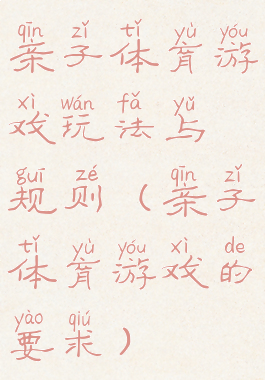 qīn zǐ tǐ yù yóu
亲子体育游
xì wán fǎ yǔ
戏玩法与
guī zé qīn zǐ
规则（亲子
tǐ yù yóu xì de
体育游戏的
yào qiú
要求）